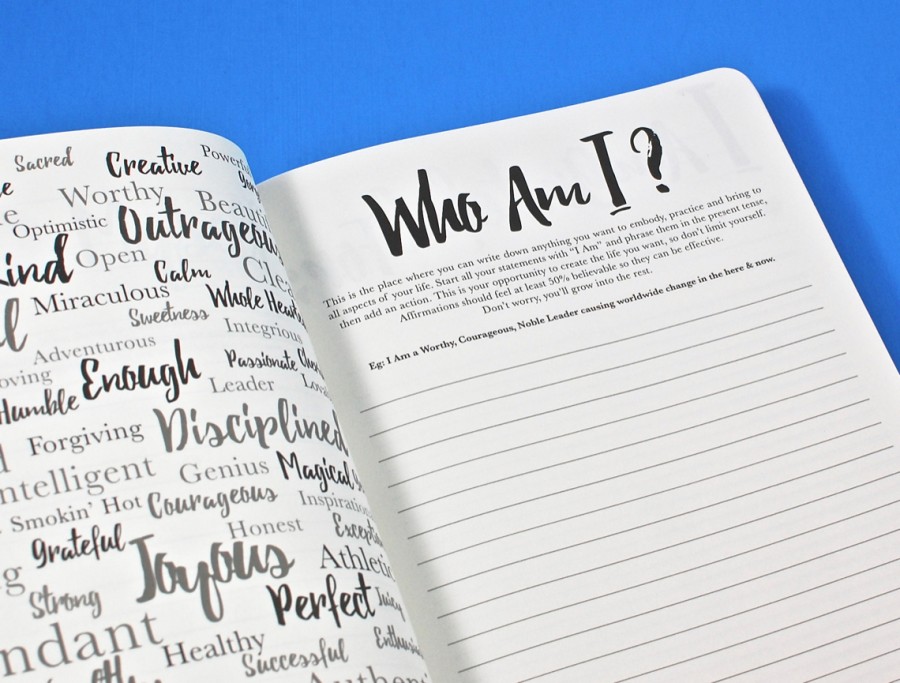 Sacred
Creative
Worthy
Optimistic
Outrageous
Open
Calm
Miraculous
Whole
Sweetness
Integrious
Adventurous
Passionate
Enough
Leader
Humble
Disciplined
Forgiving
Genius
Magical
Smokin' Hot
Courageous
Honest
grateful
Joyous
Strong
Perfect
Juicy
Healthy
Successful
Who Am I?
This is the place where you can write down anything you want to embody, practice and bring to
all aspects of your life. Start all your statements with "I Am" and phrase them in the present tense,
then add an action. This is your opportunity to create the life you want, so don't limit yourself.
Affirmations should feel at least 50% believable so they can be effective.
Don't worry, you'll grow into the rest.
Eg: I Am a Worthy, Courageous, Noble Leader causing worldwide change in the here & now.